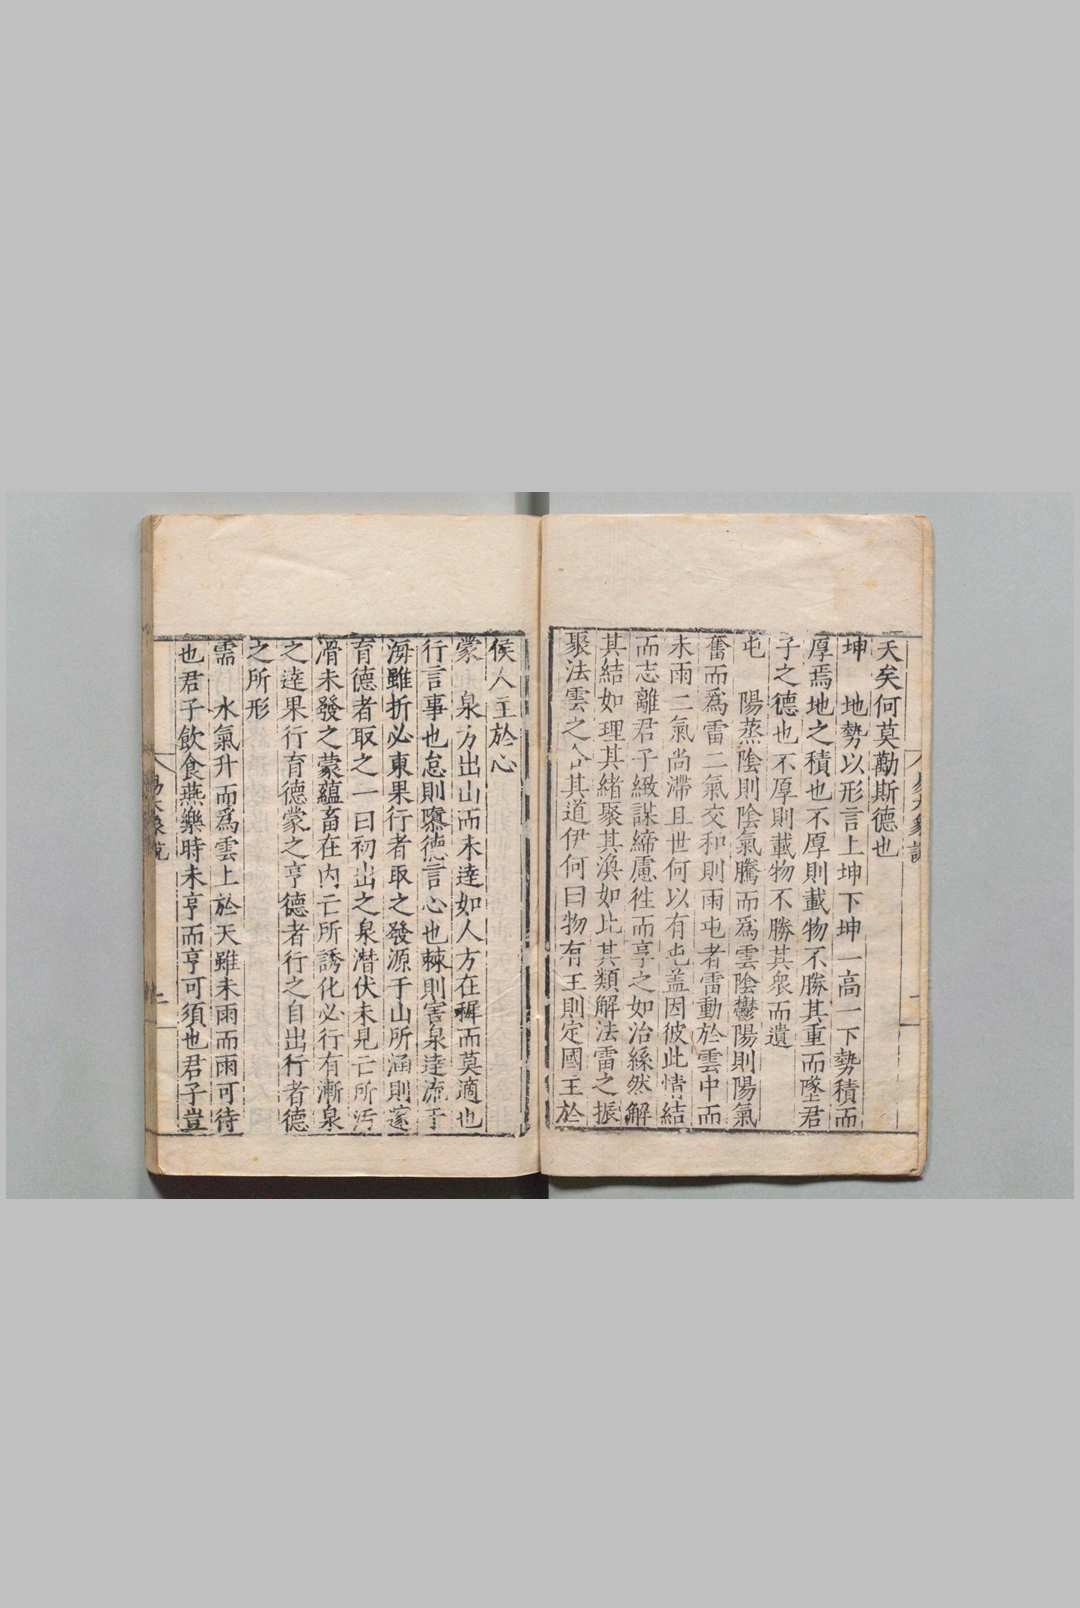 天矣何莫勸斯德也
坤　地勢以形言上坤下坤一高一下勢積而
厚焉地之積也不厚則載物不勝其重而墜君
子之德也不厚則載物不勝其衆而遺
屯　陽蒸陰則陰氣騰而爲雲陰鬱陽則陽氣
奮而爲雷二氣交和則雨屯者雷動於雲中而
未雨二氣尚滯且世何以有屯蓋因彼此情結
而志離君子緻謀締慮徃而亨之如治絲然解
其結如理其緒聚其渙如比其類解法雷之振
聚法雲之合其道伊何曰物有主則定國主於
侯人主於心
蒙　泉方出山而未逹如人方在穉而莫適也
行言事也怠則隳德言心也棘則害泉逹流于
海雖折必東果行者取之發源于山所涵則邃
育德者取之一曰初出之泉潛伏未見亡所污
滑未發之蒙蘊畜在内亡所誘化必行有漸泉
之逹果行育德蒙之亨德者行之自出行者德
之所形
需　水氣升而爲雲上於天雖未雨而雨可待
也君子飲食燕樂時未亨而亨可須也君子豈
易大象說
上